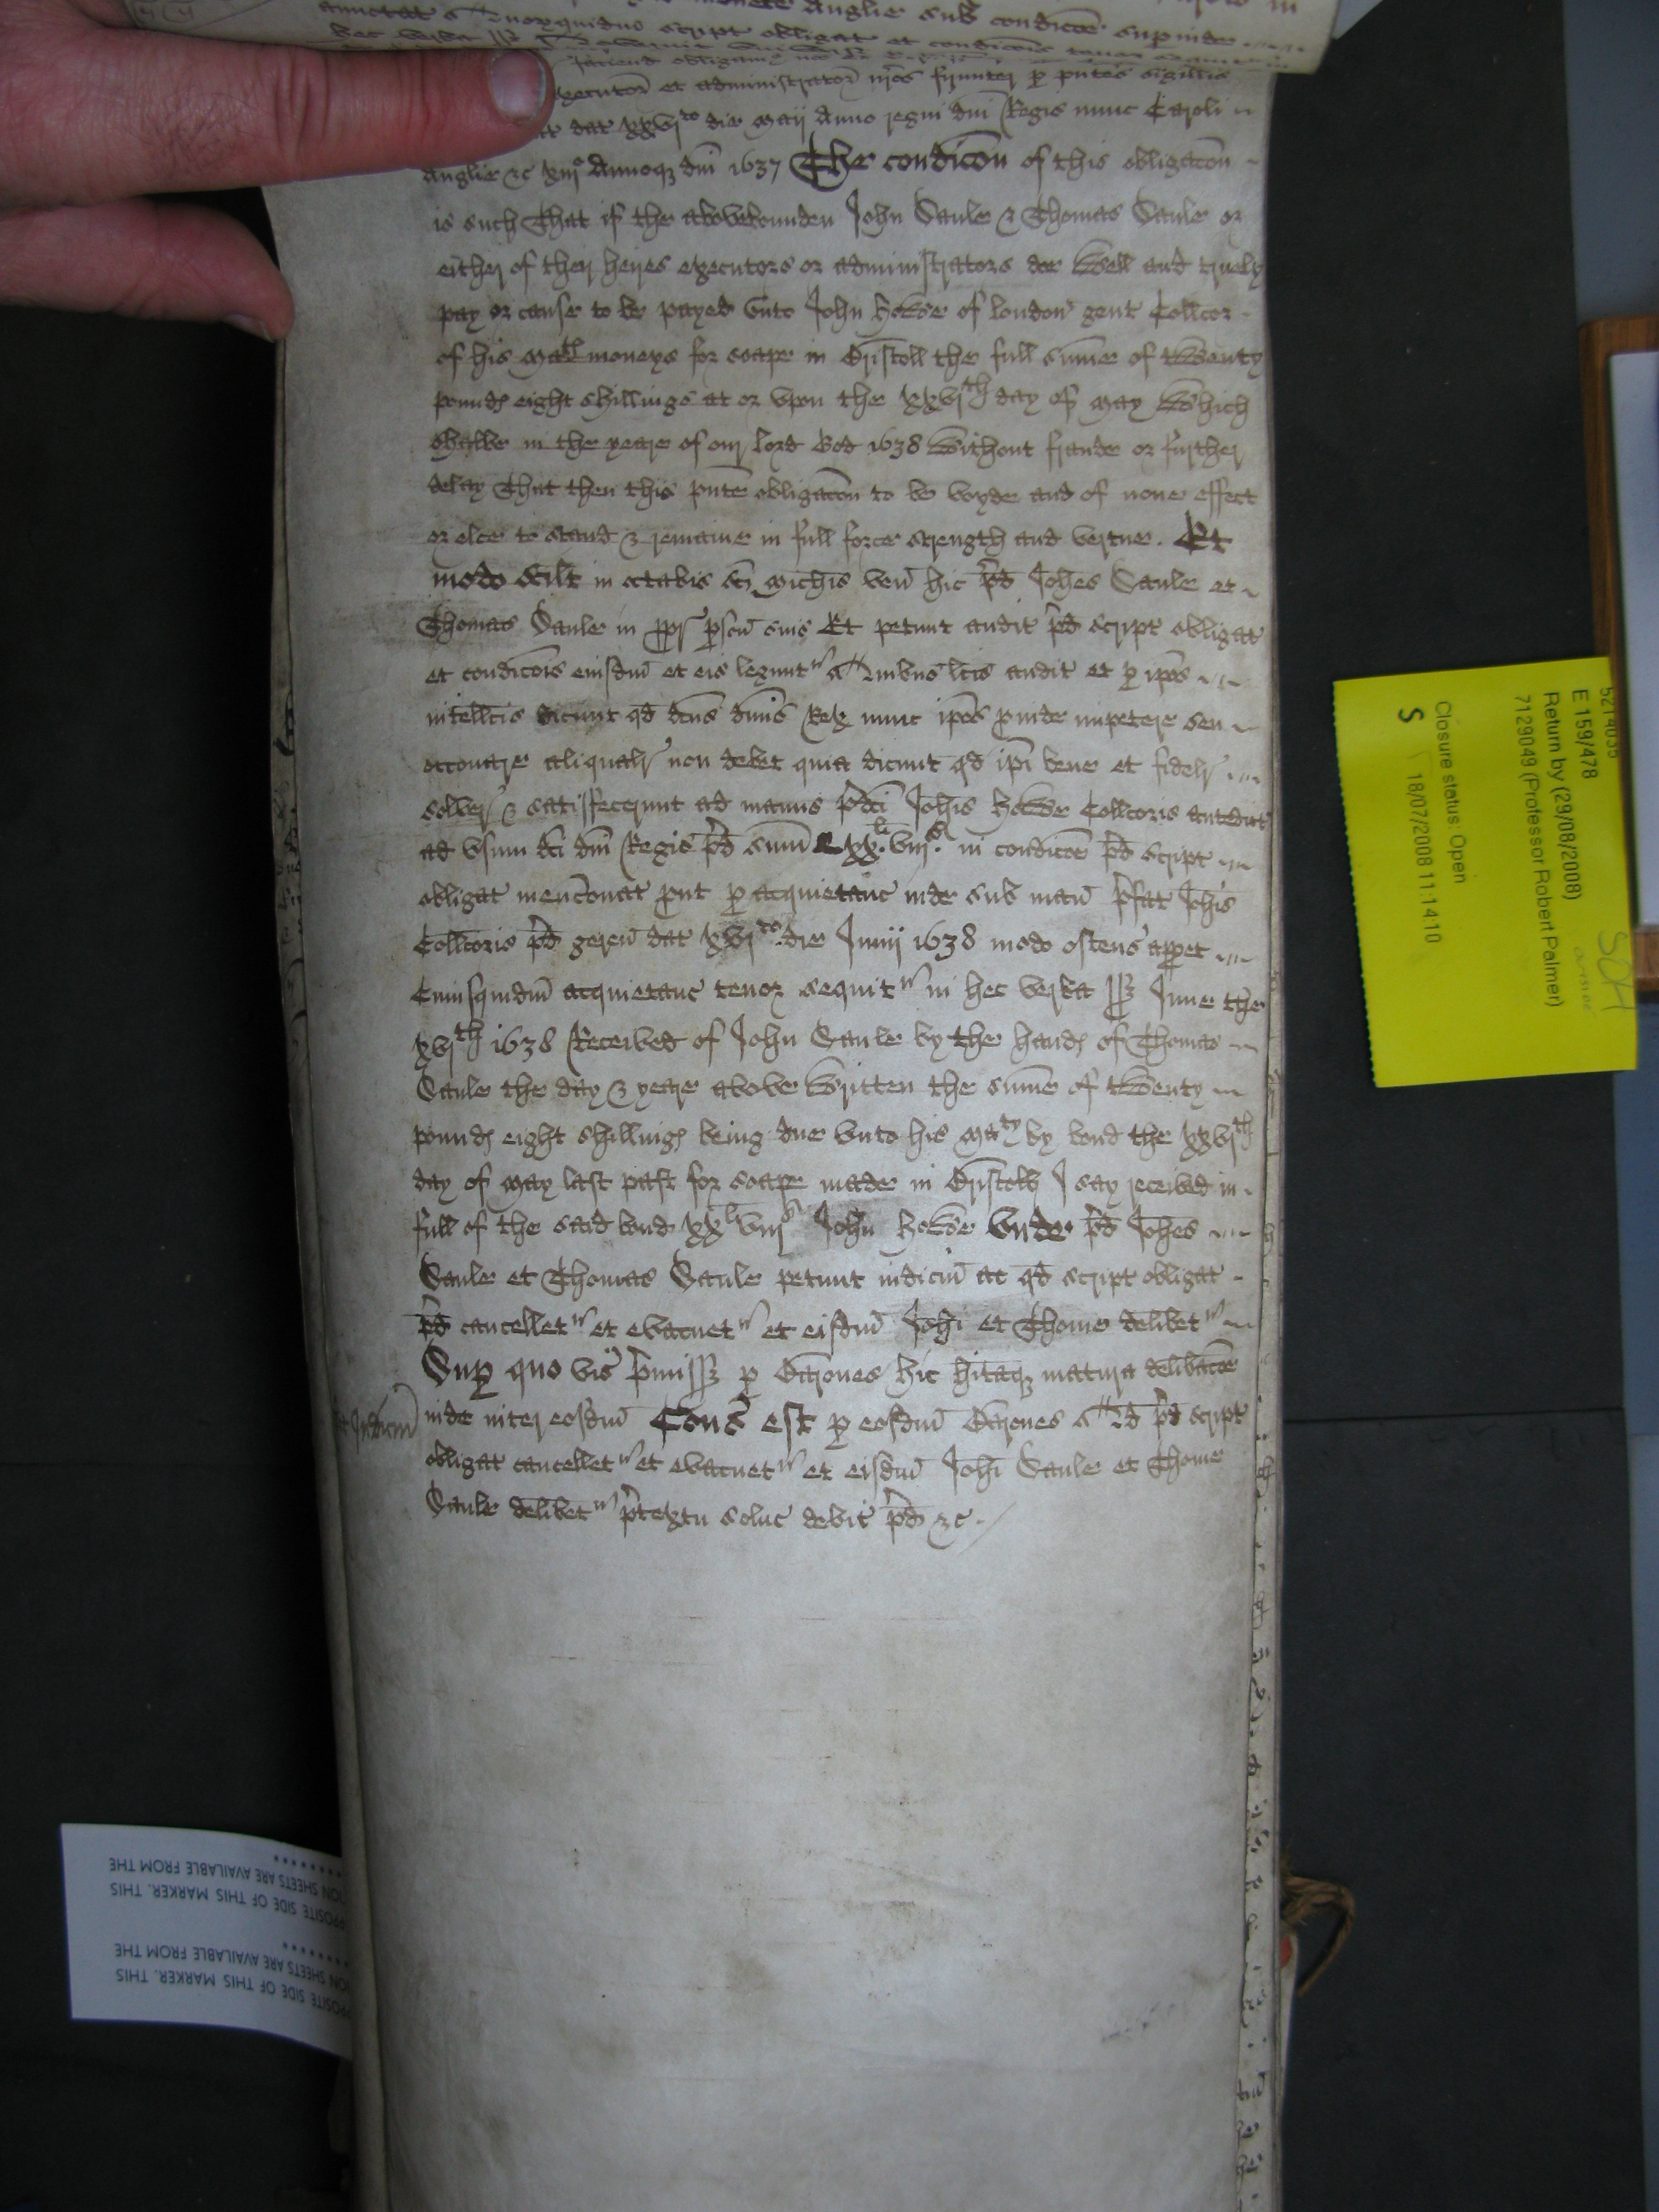 monete Anglie sub condicōe supinde
hec verba
executor et administrator nrōs firmiter p pntes sigillis
dat xxvjto die Maij Anno regni dni Regis nunc Caroli
Anglie &c xiijo Annoq dni 1637 The condicōn of this obligacōn
is such That if the abovebounden John Saule & Thomas Saule or
either of their heires executors or administrators doe well and truely
pay or cause to be payed unto John Howe of london gent Collcor
of his Mats moneys for soape in Bristoll the full summe of twenty
pounds eight shillings at or vpon the xxvjth day of May which
shalbe in the yeare of our lord God 1638 without fraude or further
delay That then this pnte obligacōn to be voyde and of none effect
or elce to stand & remaine in full force strength and vertue. Et
modo scilt in octabis sci Michis ven hic pd Johes Saule et
Thomas Saule in ppr psoū suis Et petunt audit pd script obligat
et condicōis eiusdm et eis leguntr quibus lcis audit et p ipos
intellcis dicunt qd dcus dnus Rex nunc ipos pinde impetere seu
occonare aliqualr non debet quia dicunt qd ipi bene et fidelr
solver & satisfecerunt ad manus pdci Johis Howe Collcoris antedict
ad vsum dci dni Regis pd summ xxli viijs in condicōe pd script
obligat mencōnat put p acquietanc inde sub manū pfat Johis
Collcoris pd geren dat xvjto die Junij 1638 modo ostens appet
Cuiusquidm acquietanc tenor sequitr in hec verba ss June the
xvjth 1638 Received of John Saule by the hands of Thomas
Saule the day & yeare above written the summe of twenty
pounds eight shillings being due unto his Maty by bond the xxvjth
day of May last past for soape made in Bristoll I say received in
full of the said bond xxl viijs John Howe Vnde pd Johes
Saule et Thomas Saule petunt iudiciū ac qd script obligat
pd cancelletr et evacuetr et eisdm Johi et Thome delibetr
Sup quo vis pmissz p Barones hic hitaq matura delibacōe
inde inter eosdm Cons est p eosdm Barones qd pd script
Judiciū
obligat cancelletr et evacuetr et eisdm Johi Saule et Thome
Saule delibetr ptextu soluc debit pd &c
5214035
E 159/478
Return by (29/08/2008)
7129049 (Professor Robert Palmer)
Closure status: Open
S 18/07/2008 11:14:10
OPPOSITE SIDE OF THIS MARKER. THIS
ION SHEETS ARE AVAILABLE FROM THE
OPPOSITE SIDE OF THIS MARKER. THIS
ION SHEETS ARE AVAILABLE FROM THE